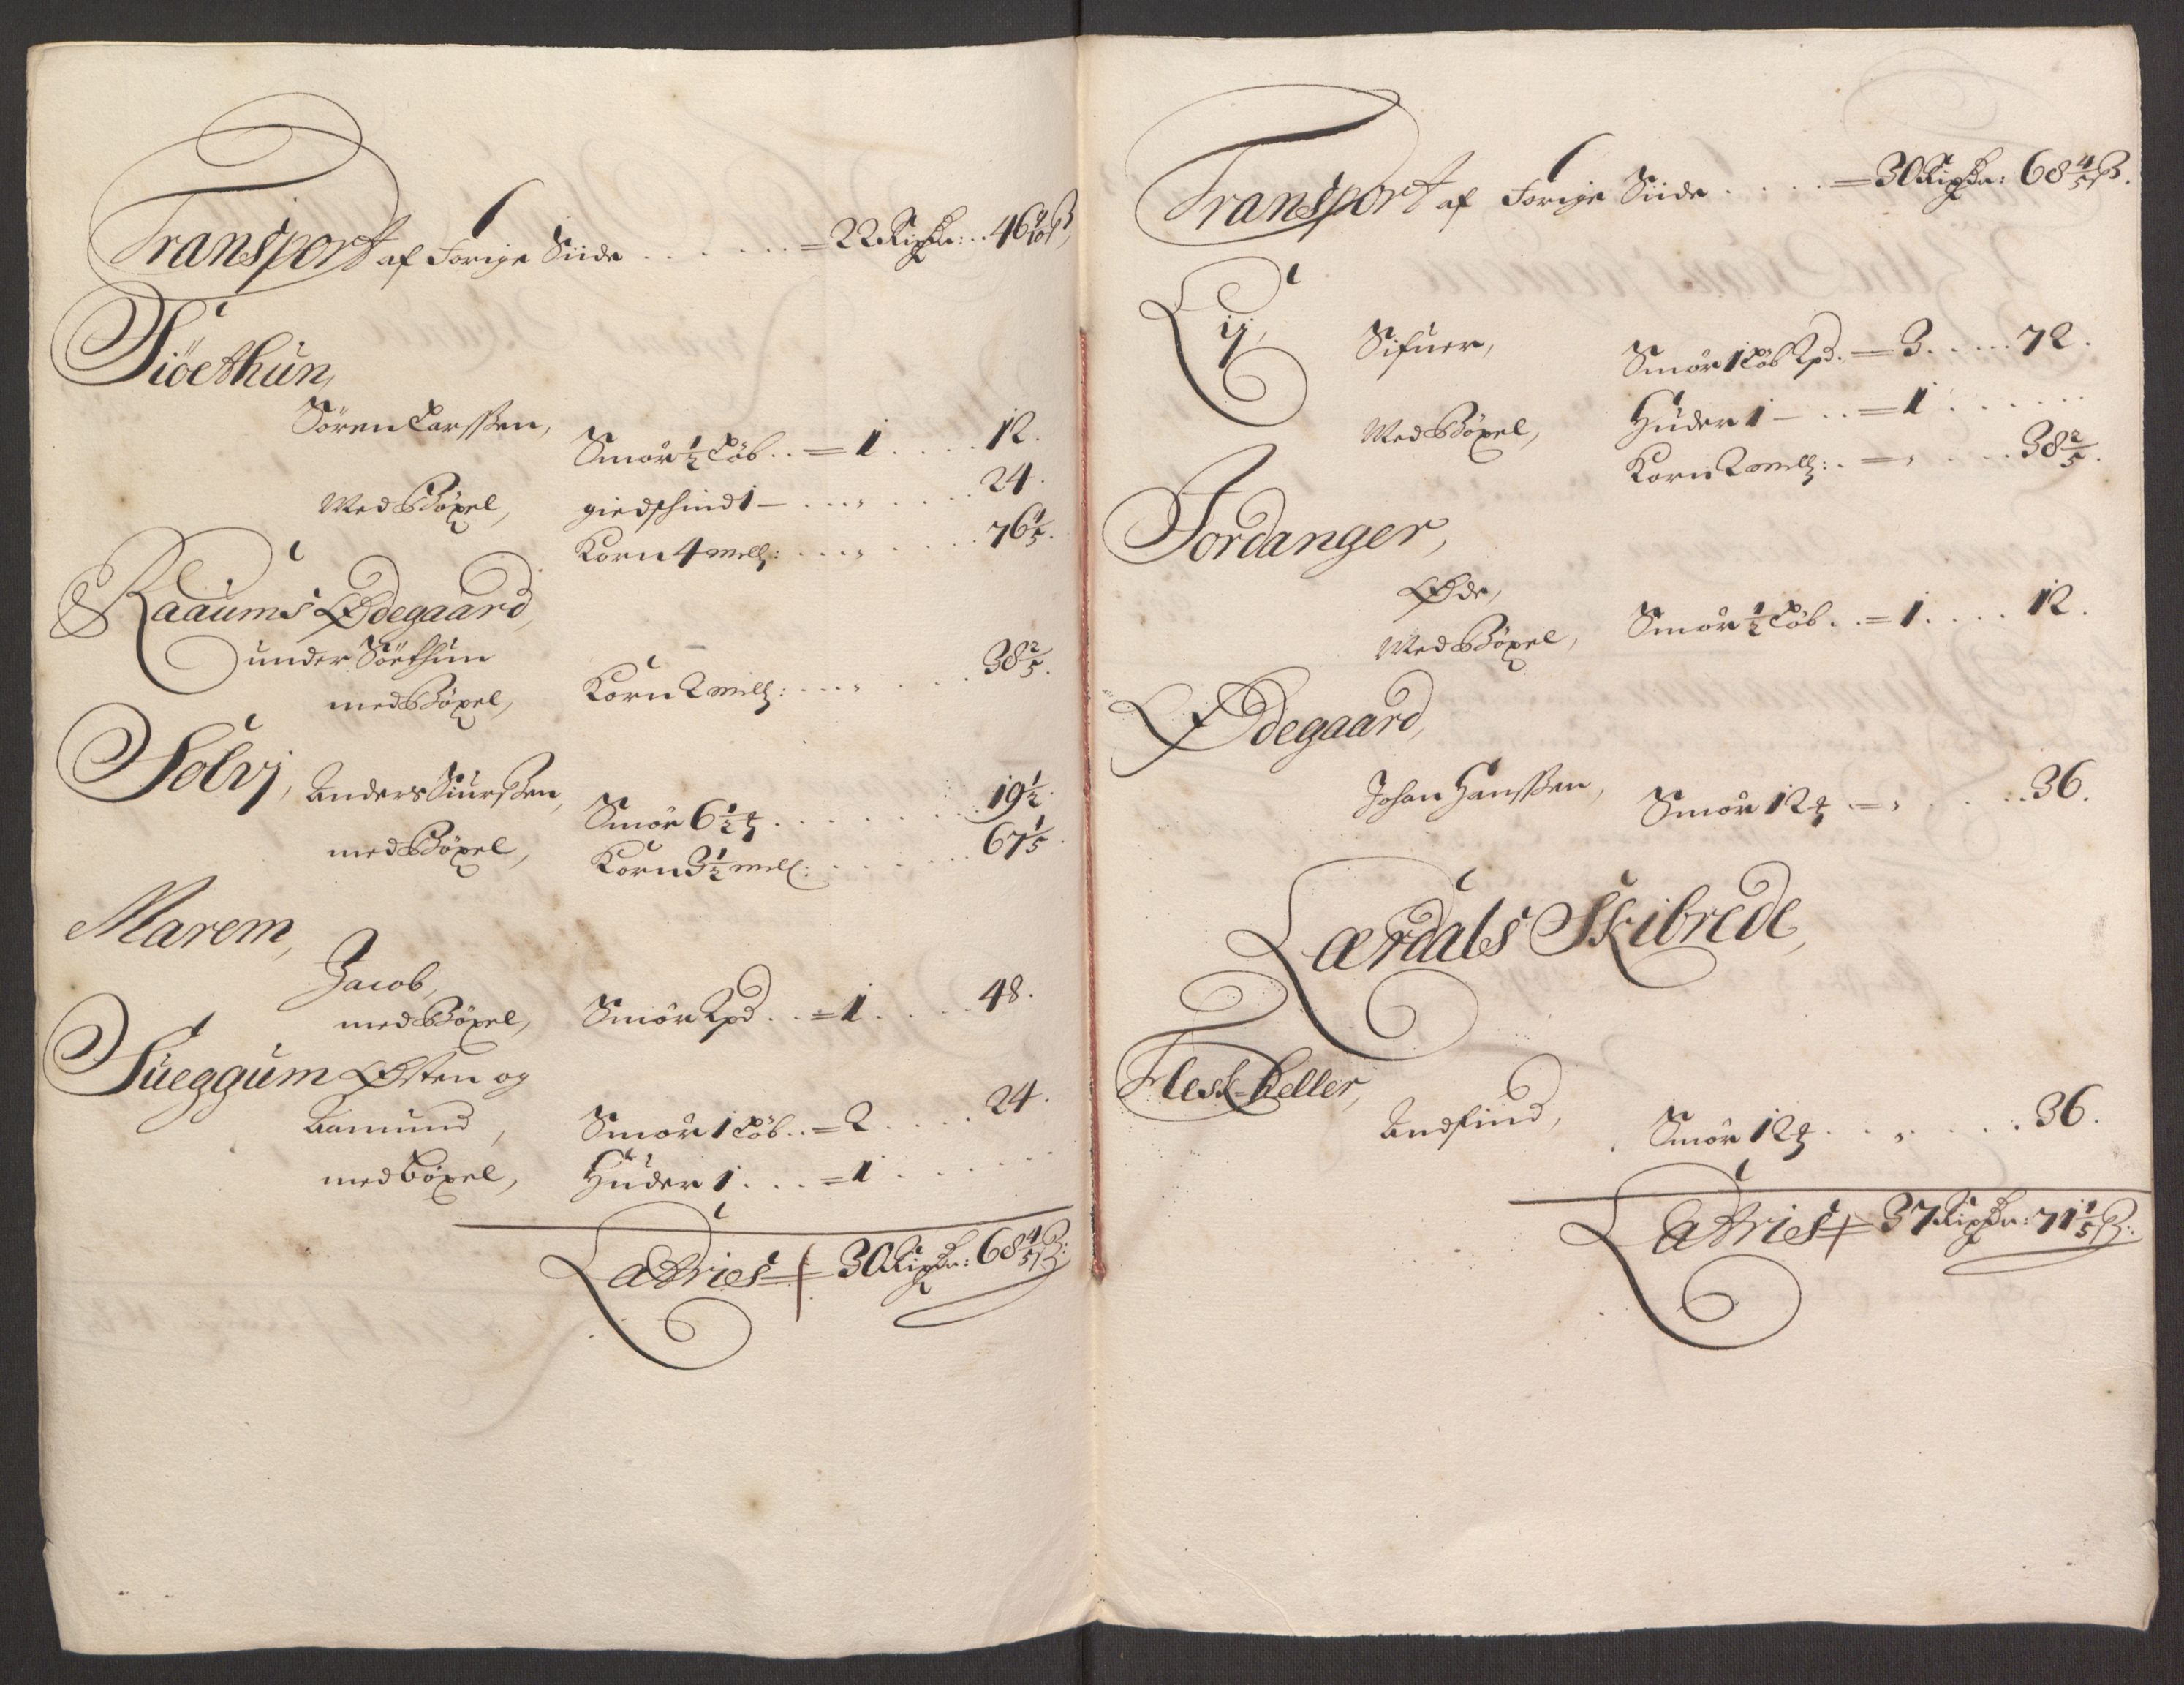 Transport af Forige Siide . . . . . . = 22 Rixdr: . 46 9/10 ß,
Siöethun,
Sören Larssen, Smör 1/2 Löb . . = 1 . . . . 12.
Med Böxel, giedschind 1 — . . . „ . . . . 24.
Korn 4 melr: . . . „ . . . . 76 4/5.
Raaums Ødegaard,
under Söethun
med Böxel, Korn 2 melr: . . . „ . . . . 38 2/5.
Solvj, Anders Siurssen, Smör 6 1/2 . . . . . . . 19 1/2.
med Böxel, Korn 3 1/2 mel: . . . . . . 67 1/5
Marem,
Jacob,
med Böxel, Smör 2 pd . . = 1 . . . . 48.
Sueggum Østen og
Aamund, Smör 1 Löb . . = 2 . . . . 24.
med böxel, Huder 1 . . . = 1 . . . . . .
Latries = 30 Rixdr: 68 4/5 ß:
Transport af Forige Siide . . . . = 30 Rixdr: 68 4/5 ß.
Lij, Sifuer, Smör 1 Löb 2 pd. = 3 . . . . 72.
Med Böxel, Huder 1 — . . = 1 . . . . . .
Korn 2 melr: . = „ . . . . 38 2/5.
Jordanger,
Øde,
Med Böxel, Smör 1/2 Löb . . = 1 . . . . 12.
Ødegaard,
Johan Hanssen, Smör 12 — = „ . . . . 36.
Lærdals Skibrede,
Flesk-heller,
Andfind, Smör 12 . . . „ . . . . 36.
Latries = 37 Rixdr: 71 1/5 ß: